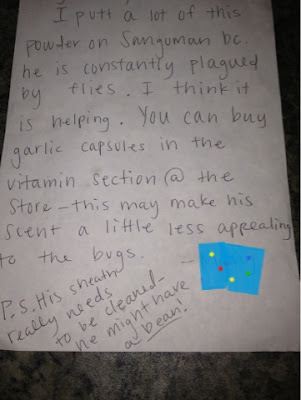 I putt a lot of this
powder on Sanguman bc.
he is constantly plagued
by flies. I think it
is helping. You can buy
garlic capsules in the
vitamin section @ the
store - this may make his
scent a little less appealing
to the bugs.
-
P.S. His sheath
really needs
to be cleaned -
he might have
a bean!